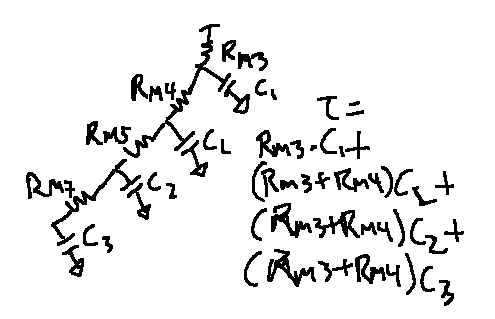 RM3
RM4
C1
RM5
CL
RM7
C2
C3
τ=
RM3·C1+
(RM3+RM4)CL+
(RM3+RM4)C2+
(RM3+RM4)C3